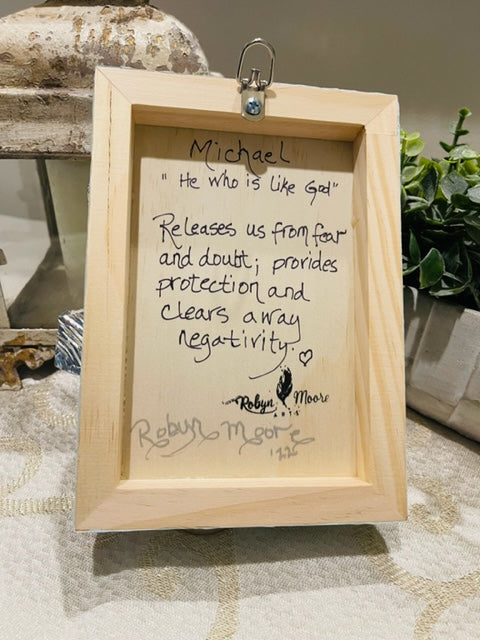 Michael
" He who is like God"
Releases us from fear
and doubt; provides
protection and
clears away
negativity.
Robyn Moore
ARTS
Robyn Moore
'22